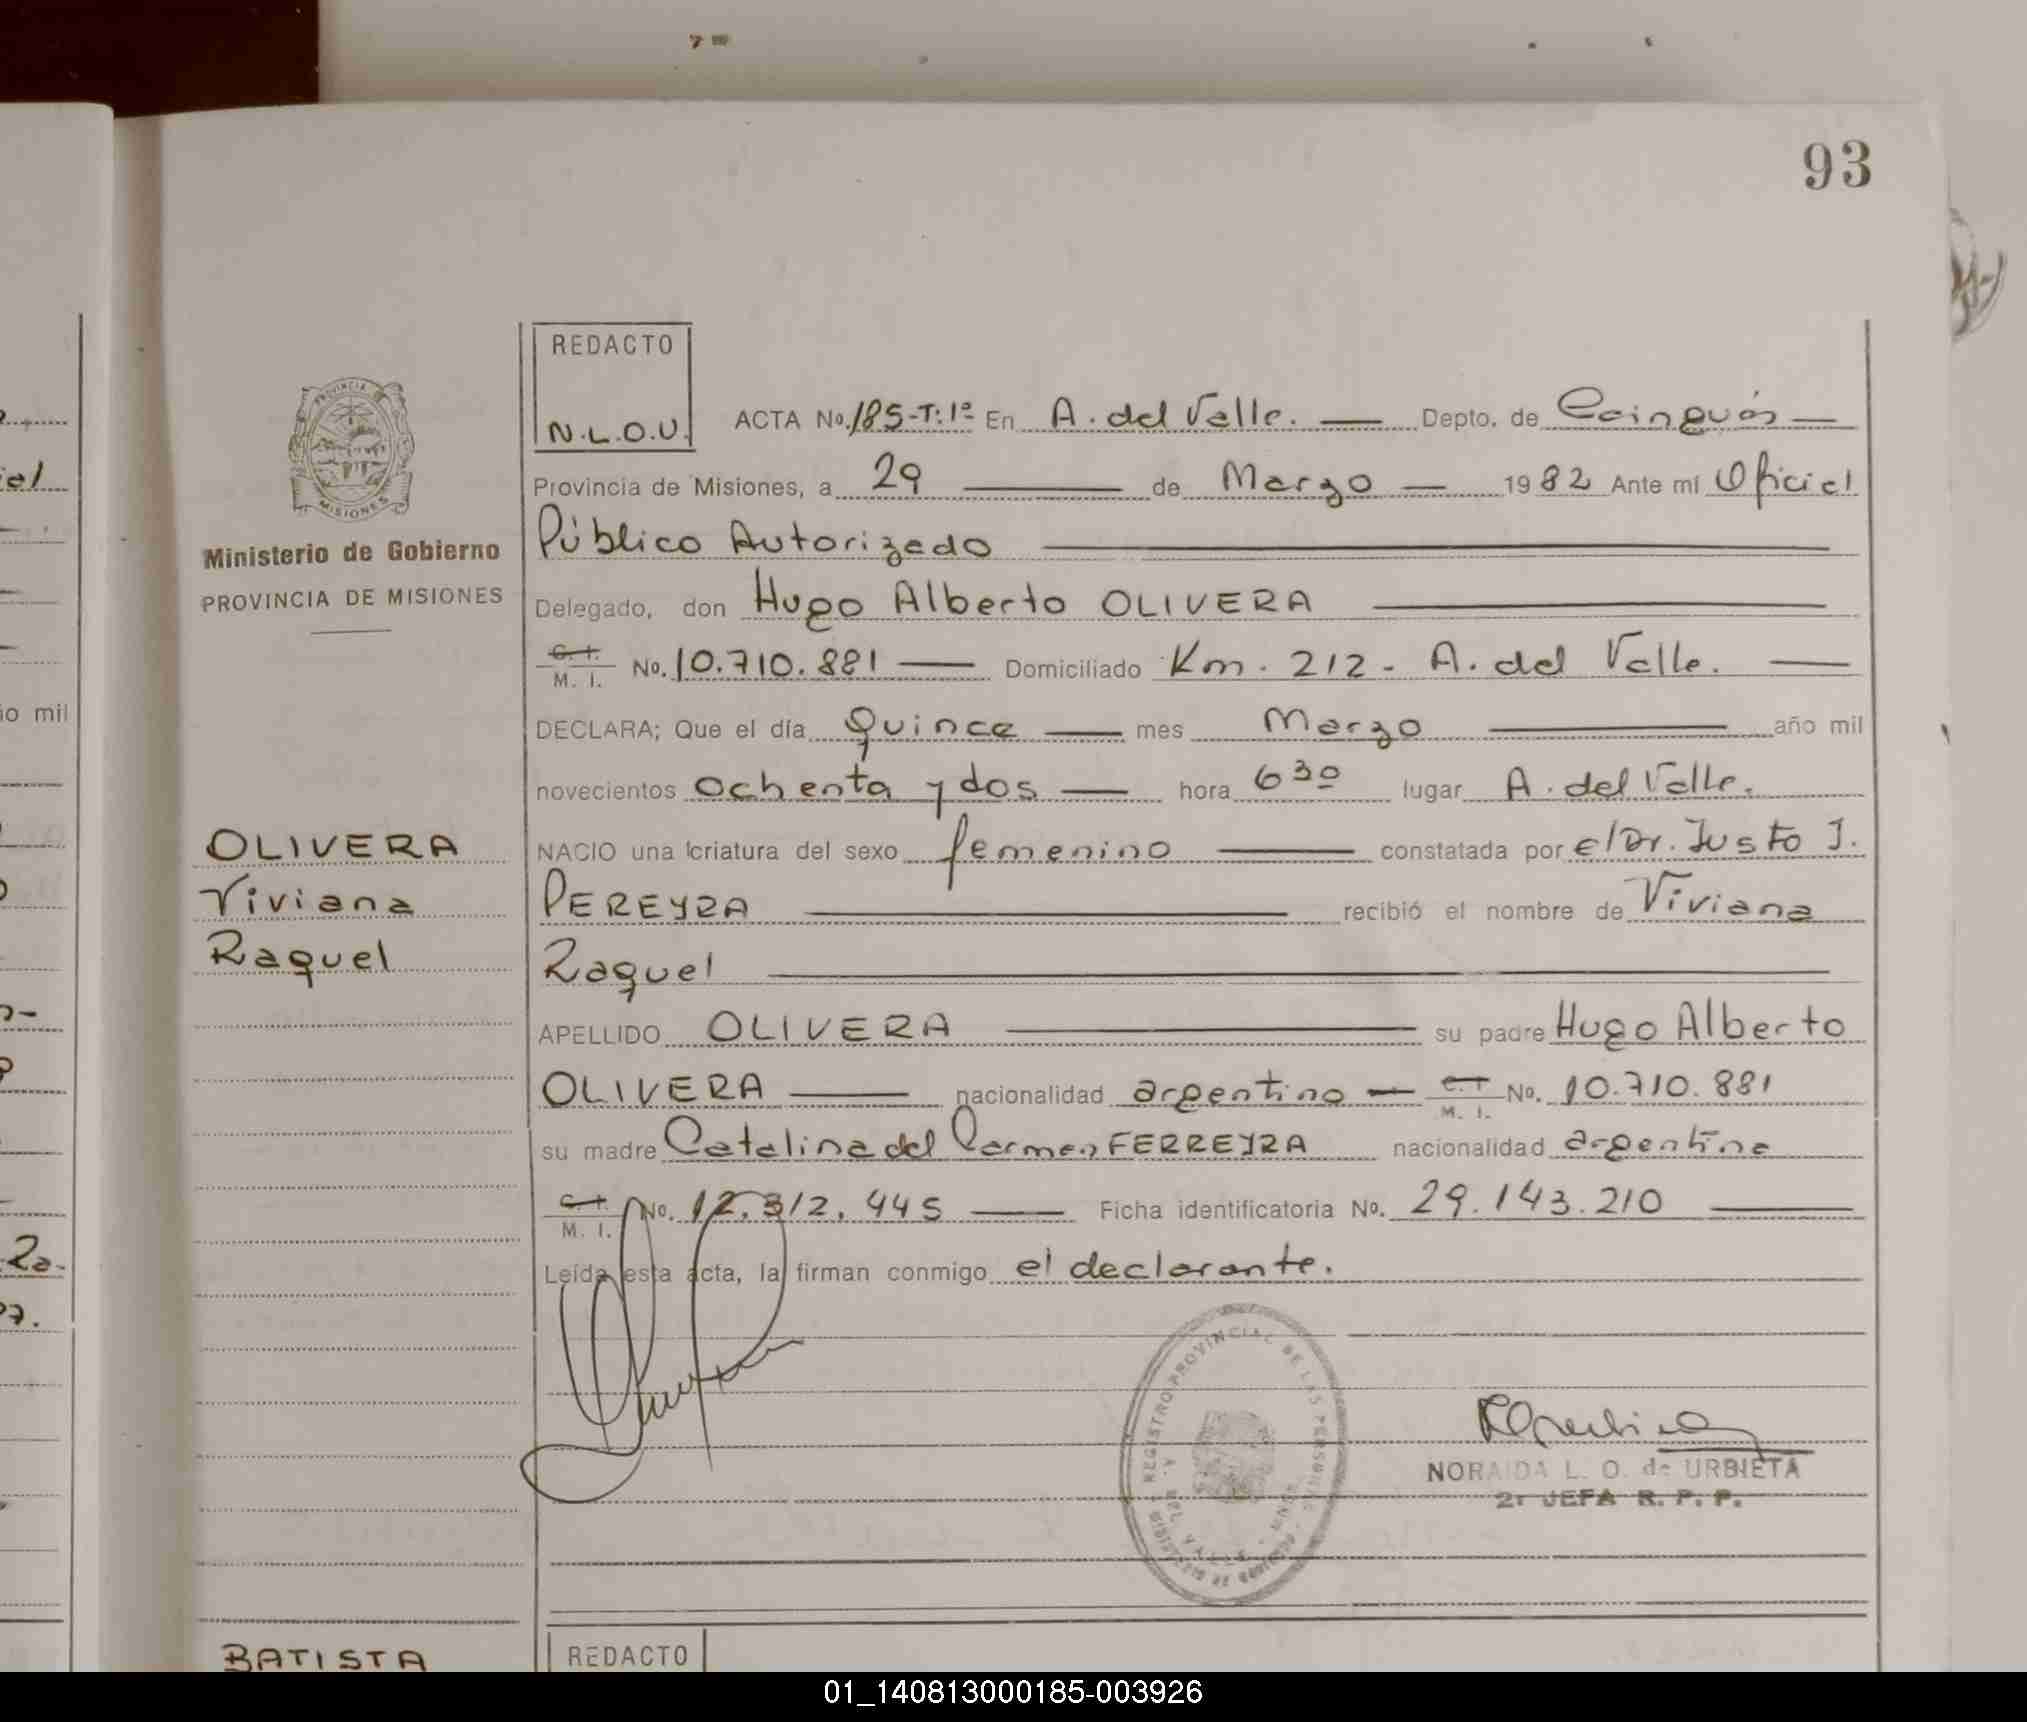 93
REDACTO
N.L.O.U.
ACTA No. 185-T:1º En A. del Valle. — Depto. de Cainguás —
Provincia de Misiones, a 29 — de Marzo — 1982 Ante mí Oficial
Público Autorizado
Delegado, don Hugo Alberto OLIVERA
C. I. M. I. No. 10.710.881 — Domiciliado Km. 212 - A. del Valle. —
DECLARA; Que el día quince — mes Marzo — año mil
novecientos ochenta y dos — hora 6 30 lugar A. del Valle.
NACIO una criatura del sexo femenino — constatada por el Dr. Justo J.
PEREYRA — recibió el nombre de Viviana
Raquel
APELLIDO OLIVERA — su padre Hugo Alberto
OLIVERA — nacionalidad argentino — C. I. M. I. No. 10.710.881
su madre Catalina del Carmen FERREYRA nacionalidad argentina
C. I. M. I. No. 12.312.445 — Ficha identificatoria No. 29.143.210 —
Leída esta acta, la firman conmigo el declarante.
REGISTRO PROVINCIAL DE LAS PERSONAS
A. DEL VALLE
NORAIDA L. O. de URBIETA
2r JEFA R. P. P.
PROVINCIA
MISIONES
Ministerio de Gobierno
PROVINCIA DE MISIONES
OLIVERA
Viviana
Raquel
BATISTA
REDACTO
io mil
01_140813000185-003926